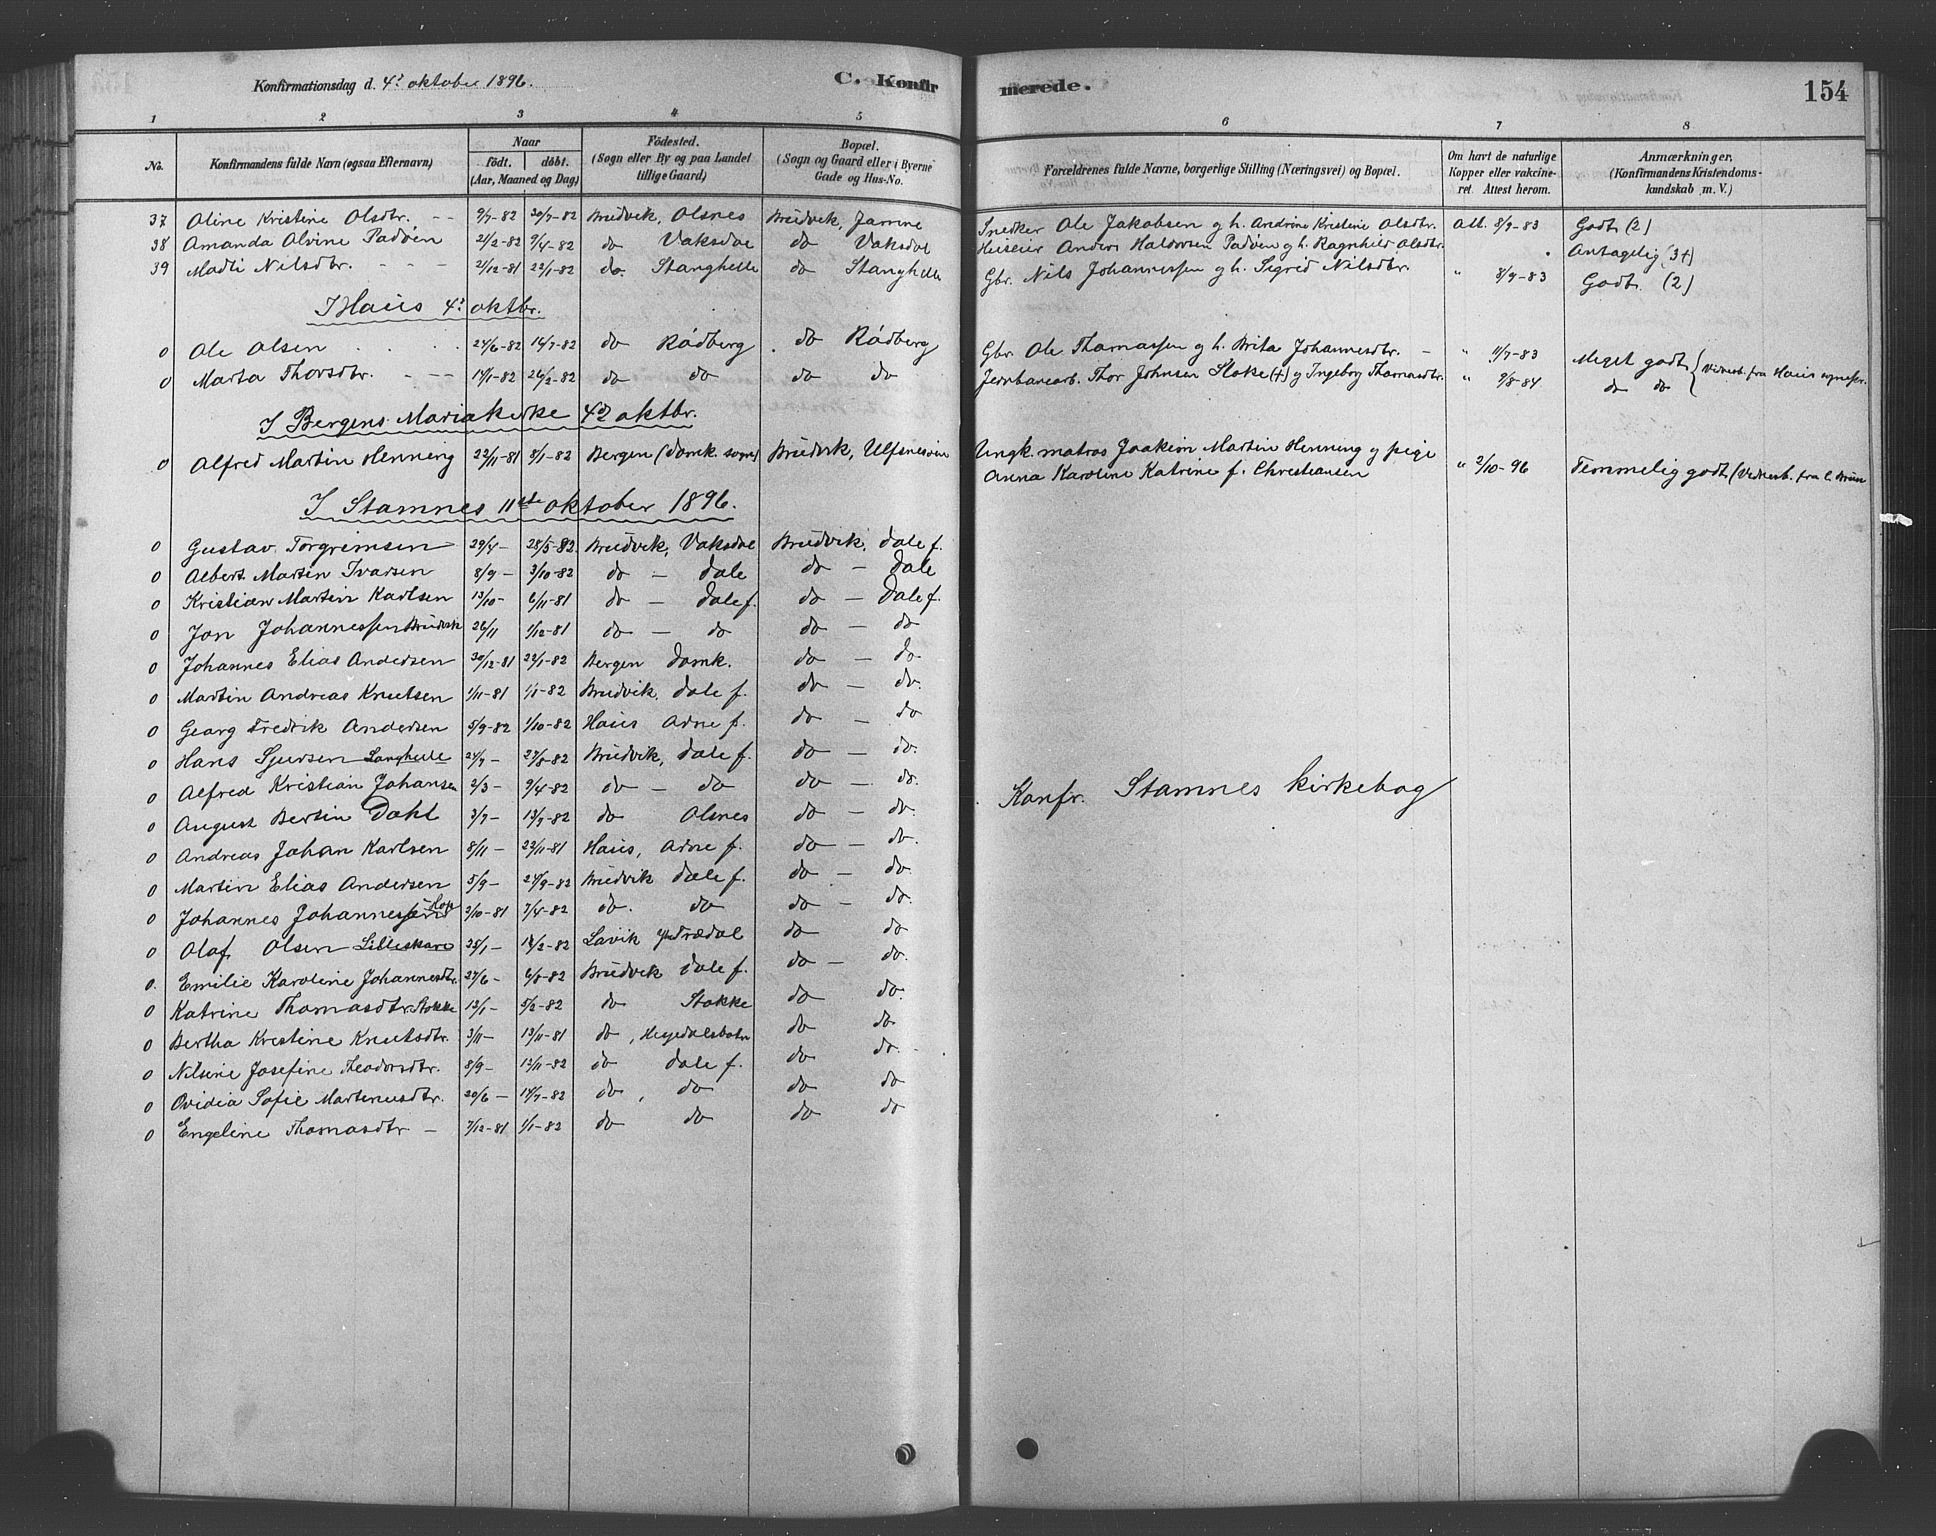 Konfirmationsdag d. 4de oktober 1896. C. Konfir merede. 154
1 2 3 4 5 6 7 8
No. Konfirmandens fulde Navn (ogsaa Efternavn) Naar födt. döbt. (Aar, Maaned og Dag) Födested. (Sogn eller By og paa Landet tillige Gaard) Bopæl. (Sogn og Gaard eller i Byerne Gade og Hus-No. Forældrenes fulde Navne, borgerlige Stilling (Næringsvei) og Bopæl. Om havt de naturlige Kopper eller vakcineret. Attest herom. Anmærkninger. (Konfirmandens Kristendomskundskab m. V.)
37 Oline Kristine Olsdtr. 9/7-82 30/7-82 Bruvik, Olsnes Bruvik, Jamne Snedker Ole Jakobsen g h. Andrine Kristine Olsdtr. Att. 8/9-83 Godt (2)
38 Amanda Alvine Padøen 21/2-82 9/4-82 do Vaksdal do Vaksdal Huseier Anders Haldorsen Padøen g h. Ragnhild Olsdtr. Antagelig (3+)
39 Madli Nilsdtr. 2/12-81 22/1-82 do. Stanghelle do Stanghelle Gbr. Nils Johannessen g h. Sigrid Nilsdtr. " 8/9-83 Godt (2)
I Haus 4de oktbr.
0 Ole Olsen 24/6-82 16/7-82 do Rødberg do Rødberg Gbr. Ole Thomassen g h. Brita Johannesdtr. " 11/7-83 Meget godt
0 Marta Thorsdtr. 17/1-82 26/2-82 do do do do Jernbanearb. Thor Johnsen Stoke (+) g Ingeborg Thomasdtr. " 9/8-84 do do { Vidnesb. fra Haus sognepr.
I Bergens Mariakirke 4de oktbr.
0 Alfred Martin Henning 22/11-81 8/1-82 Bergen (Domk. sogn) Bruvik, Ulfsnesøen Ungk. matros Joakim Martin Henning g pige
Anna Karoline Katrine f. Christiansen " 2/10-96 Temmelig godt (Vidnesb. fra C. Bruun
I Stamnes 11te oktober 1896.
0 Gustav Torgrimsen 29/4- 28/5-82 Bruvik, Vaksdal Bruvik, Dale f.
0 Albert Martin Ivarsen 8/9- 3/10-82 do - Dale do - Dale
0 Kristian Martin Karlsen 13/10- 6/11-81 do - Dale f. do - Dale f.
0 Jon Johannessen Bruvik 26/11 1/12-81 do - do do - do
0 Johannes Elias Andersen 30/12-81 22/1-82 Bergen Domk. do - do
0 Martin Andreas Knutsen 1/11-81 1/1-82 Bruvik, Dale f. do - do.
0 Georg Fredrik Andersen 5/9-82 1/10-82 Haus Arne f. do - do
0 Hans Sjursen Langhelle 24/7- 27/8-82 Bruvik, Dale f. do - do.
0 Alfred Kristian Johansen 2/3- 9/4-82 do - do do - do. Konfr. Stamnes kirkebog
0 August Bertin Dahl 3/7- 13/7-82 do Olsnes do - do
0 Andreas Johan Karlsen 8/11- 22/11-81 Haus, Arne f. do - do.
0 Martin Elias Andersen 5/9- 24/9-82 Bruvik Dale f. do - do.
0 Johannes Johannessen 2/10-81 7/4-82 do. do do - do.
0 Olaf Olsen Lilleskare 25/1- 12/2-82 Lavik do do
0. Emilie Karoline Johannesdtr. 27/6- 6/8-82 Bruvik Dale f. do - do
0 Katrine Thomasdtr. Stokke 12/1- 5/2-82 do Stokke do do.
0 Bertha Kristine Knutsdtr. 3/11- 13/11-81 do, do do
0 Nilsine Josefine Theodorsdtr. 8/9- 12/11-82 do Dale f. do do.
0 Ovidia Sofie Martinusdtr. 20/6- 14/7-82 do, do do do
0 Engeline Thomasdtr - 7/12-81 1/1-82 do do do do